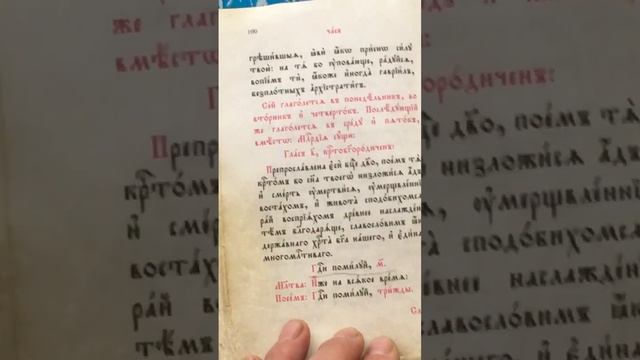 100 ча́съ
грѣ́шшыѧ, ꙗ҆вѝ ꙗ҆́кѡ при́снѡ си́лꙋ
твою̀: на тѧ́ бо ᲂу҆пова́юще, ра́дꙋйсѧ,
вопїе́мъ тѝ, ꙗ҆́коже и҆ногда̀ гаврїи́лъ,
безпло́тныхъ а҆рхїстрати́гъ.
Се́й глаго́летсѧ въ понедѣ́льникъ, во
вто́рникъ и҆ четверто́къ. Послѣ́дꙋющїй
же глаго́летсѧ въ сре́дꙋ и҆ пѧто́къ,
вмѣ́стѡ: Мл҃рдїѧ сꙋ́щи:
Гла́съ в҃, крⷭ҇тобг҃оро́диченъ:
Препросла́влена є҆сѝ бцⷣе дв҃о, пое́мъ тѧ̀
крⷭ҇то́мъ бо сн҃а твоегѡ̀ низложи́сѧ а҆́дъ,
и҆ сме́рть ᲂу҆мертви́сѧ, ᲂу҆мерщвле́ннїи
воста́хомъ, и҆ живота̀ сподо́бихомсѧ
ра́й воспрїѧ́хомъ дре́внее наслажде́нїе
тѣ́мъ благодарѧ́ще, славосло́вимъ ꙗ҆́кѡ
держа́внаго хрⷭ҇та̀ бг҃а на́шего, и҆ є҆ди́наго
многомлⷭ҇тиваго.
Гдⷭ҇и поми́лꙋй, м҃.
Мл҃тва: И҆́же на всѧ́кое вре́мѧ:
Пое́мъ: Гдⷭ҇и поми́лꙋй, три́жды.